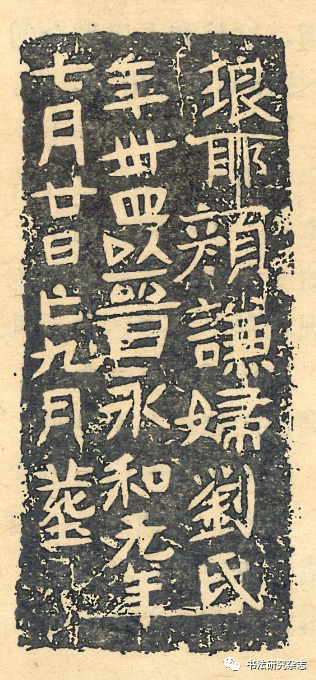 琅耶顔謙婦劉氏
年卅四以晉永和元年
七月廿日亡九月葬
书法研究杂志